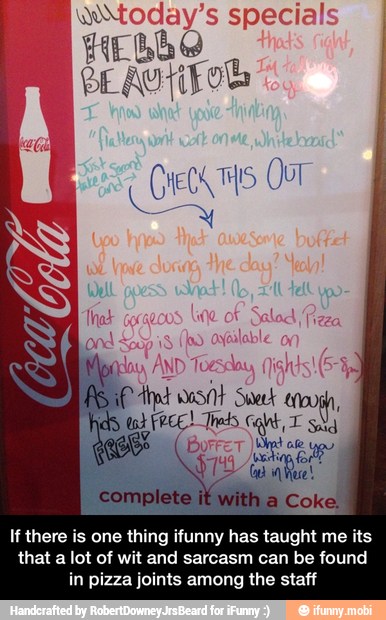 Well today's specials
HELLO
BEAUTIFUL
that's right,
I'm talking
to you
I know what you're thinking.
"flattery won't work on me, whiteboard"
Just
take a second
and →
CHECK THIS OUT
Coca-Cola
Coca-Cola
you know that awesome buffet
we have during the day? Yeah!
Well guess what! No, I'll tell you-
That gorgeous line of Salad, Pizza
and Soup is now available on
Monday AND Tuesday nights! (5-8pm)
As if that wasn't sweet enough,
Kids eat FREE! Thats right, I said
FREE!
BUFFET
$7.49
What are you
waiting for?
Get in here!
complete it with a Coke.
If there is one thing ifunny has taught me its
that a lot of wit and sarcasm can be found
in pizza joints among the staff
Handcrafted by RobertDowneyJrsBeard for iFunny :)
ifunny.mobi